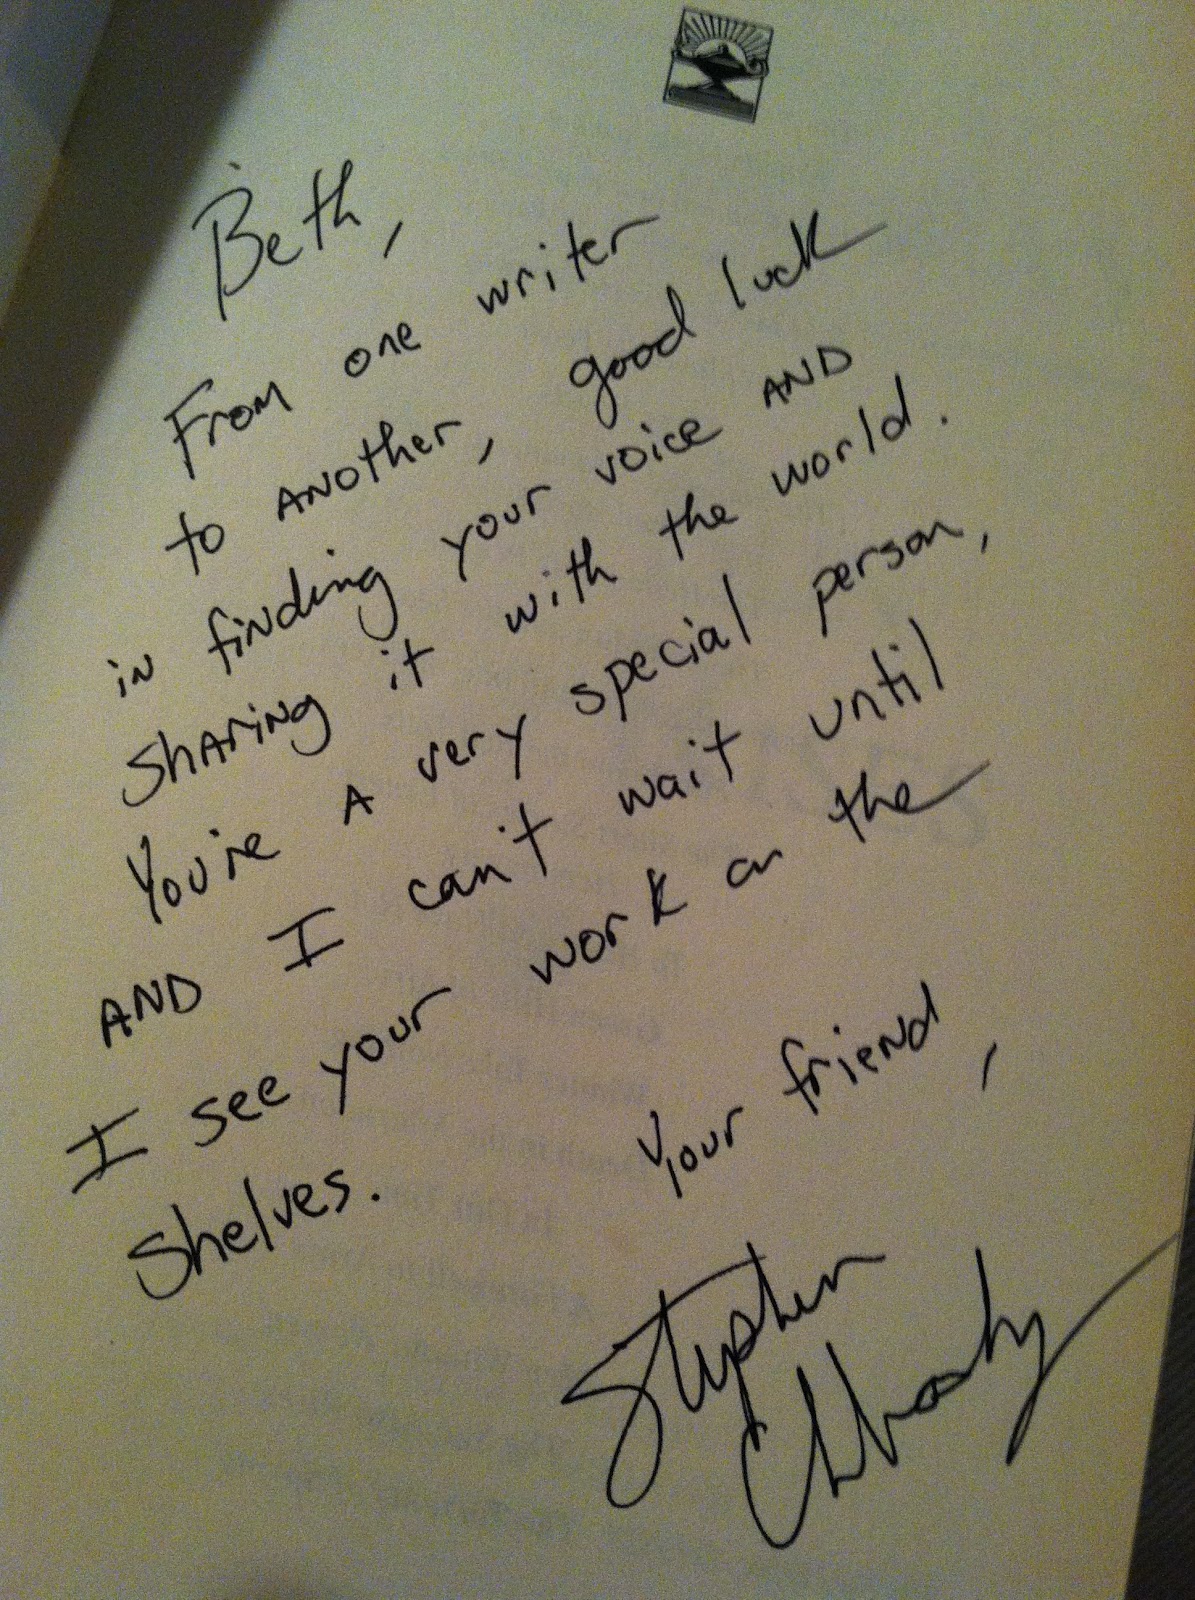 Beth,
From one writer
to ANother, good luck
in finding your voice AND
sharing it with the world.
You're A very special person,
AND I can't wait until
I see your work on the
shelves.
Your friend,
Stephen
Chbosky